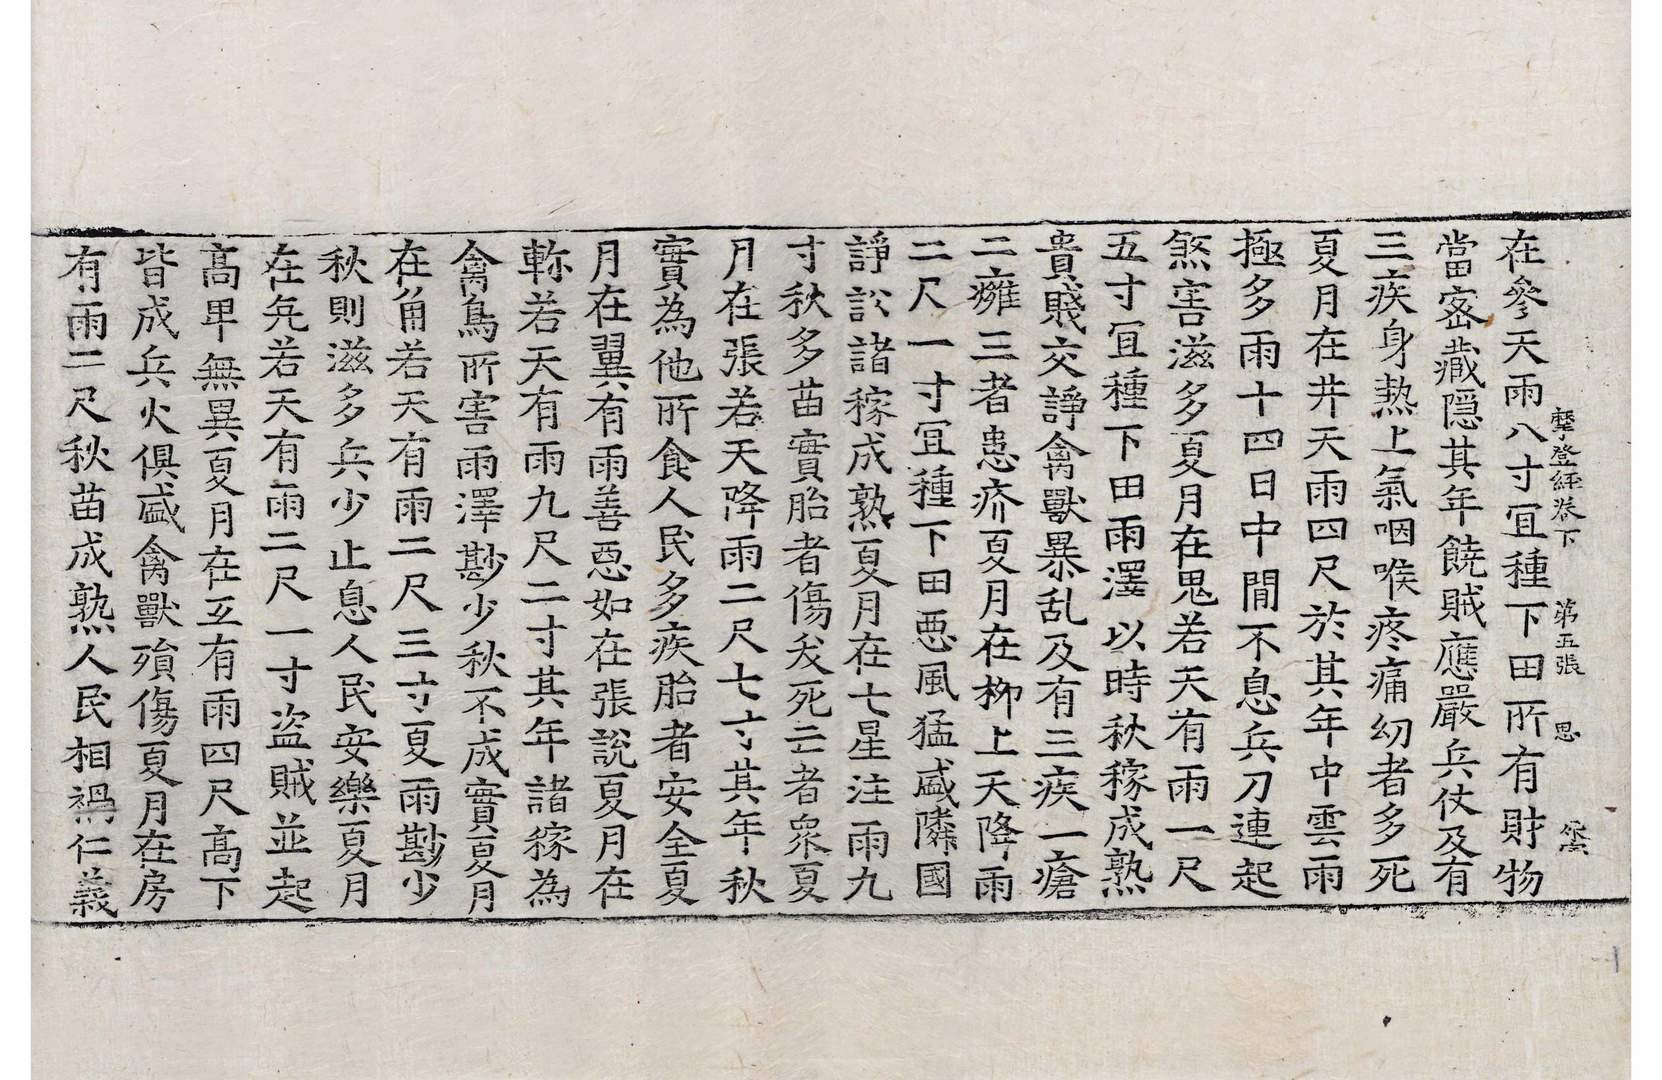 摩登經卷下　第五張　思
在參天雨八寸冝種下田所有財物
當密藏隠其年饒賊應嚴兵仗及有
三疾身熱上氣咽喉疼痛幻者多死
夏月在井天雨四尺於其年中雲雨
極多雨十四日中間不息兵刀連起
煞害滋多夏月在鬼若天有雨一尺
五寸冝種下田雨澤以時秋稼成熟
貴賤交諍禽獸暴乱及有三疾一瘡
二癰三者患疥夏月在柳上天降雨
二尺一寸冝種下田惡風猛盛隣國
諍訟諸稼成熟夏月在七星注雨九
寸秋多苗實胎者傷夭死亡者衆夏
月在張若天降雨二尺七寸其年秋
實為他所食人民多疾胎者安全夏
月在翼有雨善惡如在張說夏月在
軫若天有雨九尺二寸其年諸稼為
禽鳥所害雨澤尠少秋不成實夏月
在角若天有雨二尺三寸夏雨尠少
秋則滋多兵少止息人民安樂夏月
在亢若天有雨二尺一寸盜賊並起
高卑無異夏月在互有雨四尺高下
皆成兵火俱盛禽獸殞傷夏月在房
有雨二尺秋苗成熟人民相緺仁義